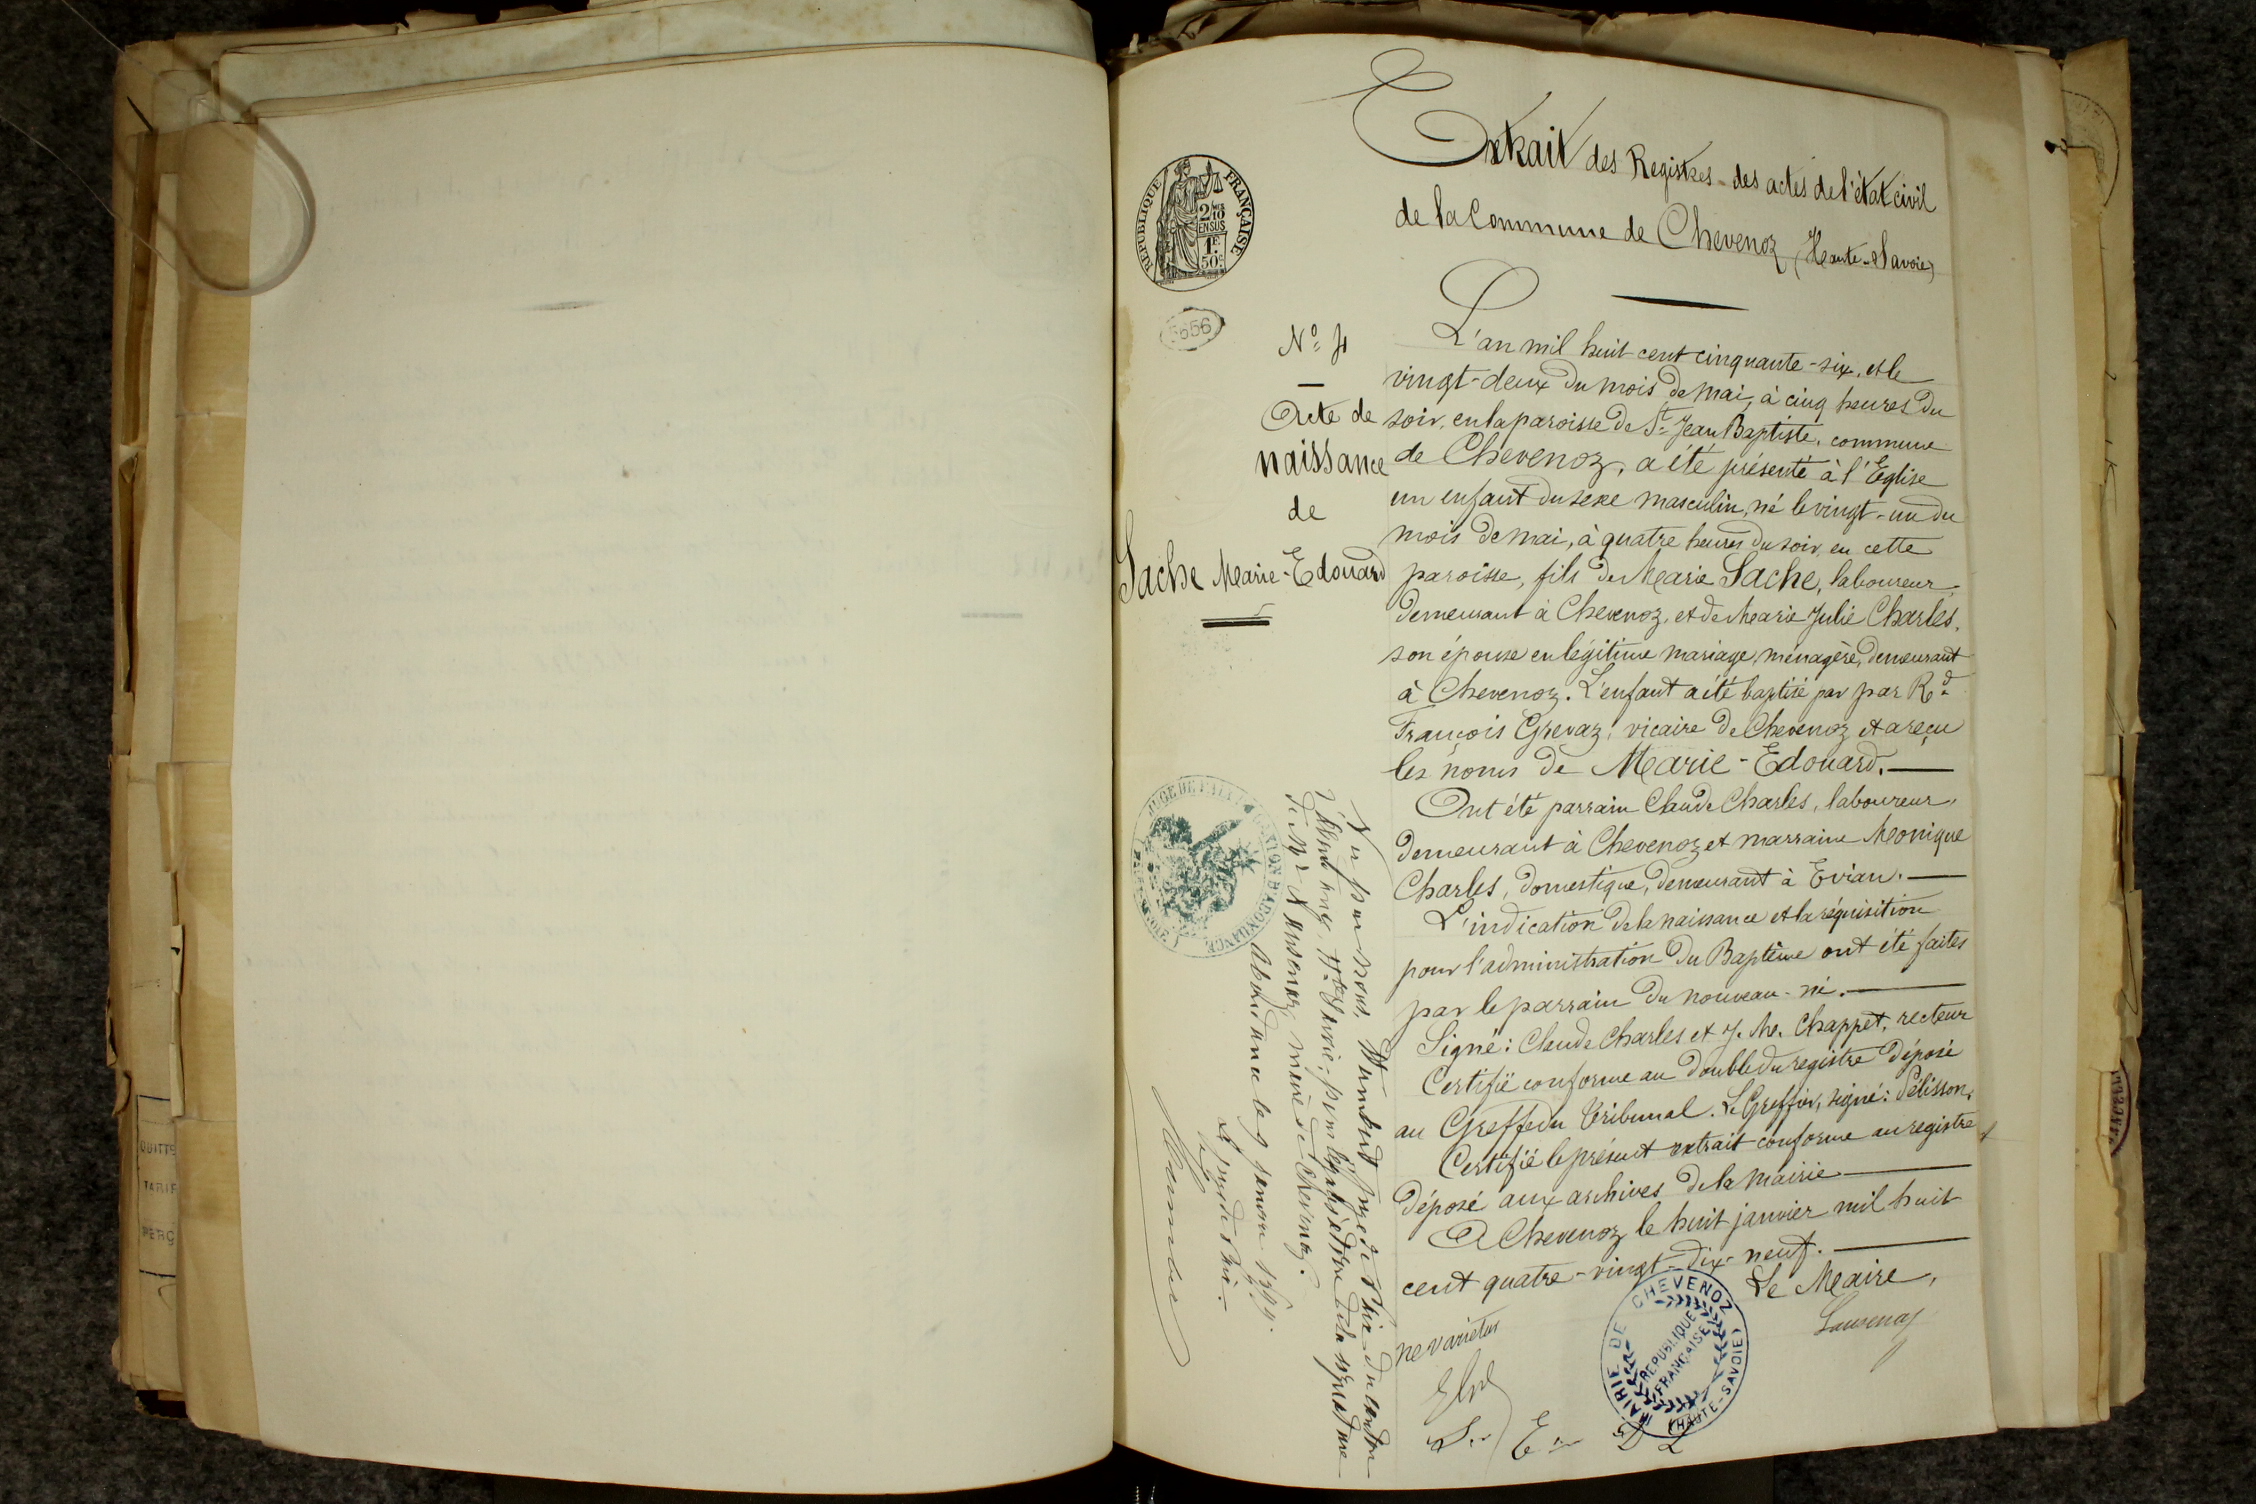 Extrait des Registres des actes de l'état civil
de la Commune de Chevenoz (Haute-Savoie)
REPUBLIQUE FRANÇAISE
2/10
EN SUS
1F
50c
5656
N° 4
Acte de
naissance
de
Sache Marie-Edouard
L'an mil huit cent cinquante-six, et le
vingt-deux du mois de mai, à cinq heures du
soir, en la paroisse de St Jean Baptiste, commune
de Chevenoz, a été présenté à l'Eglise
un enfant du sexe masculin, né le vingt-un du
mois de mai, à quatre heures du soir, en cette
paroisse, fils de Marie Sache, laboureur,
demeurant à Chevenoz, et de Marie Julie Charles,
son épouse en légitime mariage, ménagère, demeurant
à Chevenoz. L'enfant a été baptisé par par Rd
François Grevaz, vicaire de Chevenoz et a reçu
les noms de Marie-Edouard.
Ont été parrain Claude Charles, laboureur,
demeurant à Chevenoz et marraine Monique
Charles, domestique, demeurant à Evian.
L'indication de la naissance et la réquisition
pour l'administration du Baptême ont été faites
par le parrain du nouveau-né.
Signé: Claude Charles et J. M. Chappet, recteur
Certifié conforme au double du registre déposé
au Greffe du Tribunal. Le Greffier, signé: Pélisson.
Certifié le présent extrait conforme au registre
déposé aux archives de la mairie
A Chevenoz le huit janvier mil huit
cent quatre-vingt-dix-neuf.
Le Maire,
MAIRIE DE CHEVENOZ
REPUBLIQUE
FRANÇAISE
(HAUTE-SAVOIE)
ne varietur
Vu par nous, juge de Paix du canton
d'Abondance, Hte Savoie, pour légalisation de la signature
de Mr maire de Chevenoz.
Abondance le janvier 1899.
Le juge de Paix.
JUGE DE PAIX
CANTON D'ABONDANCE
QUITTE
TARIF
PERÇ